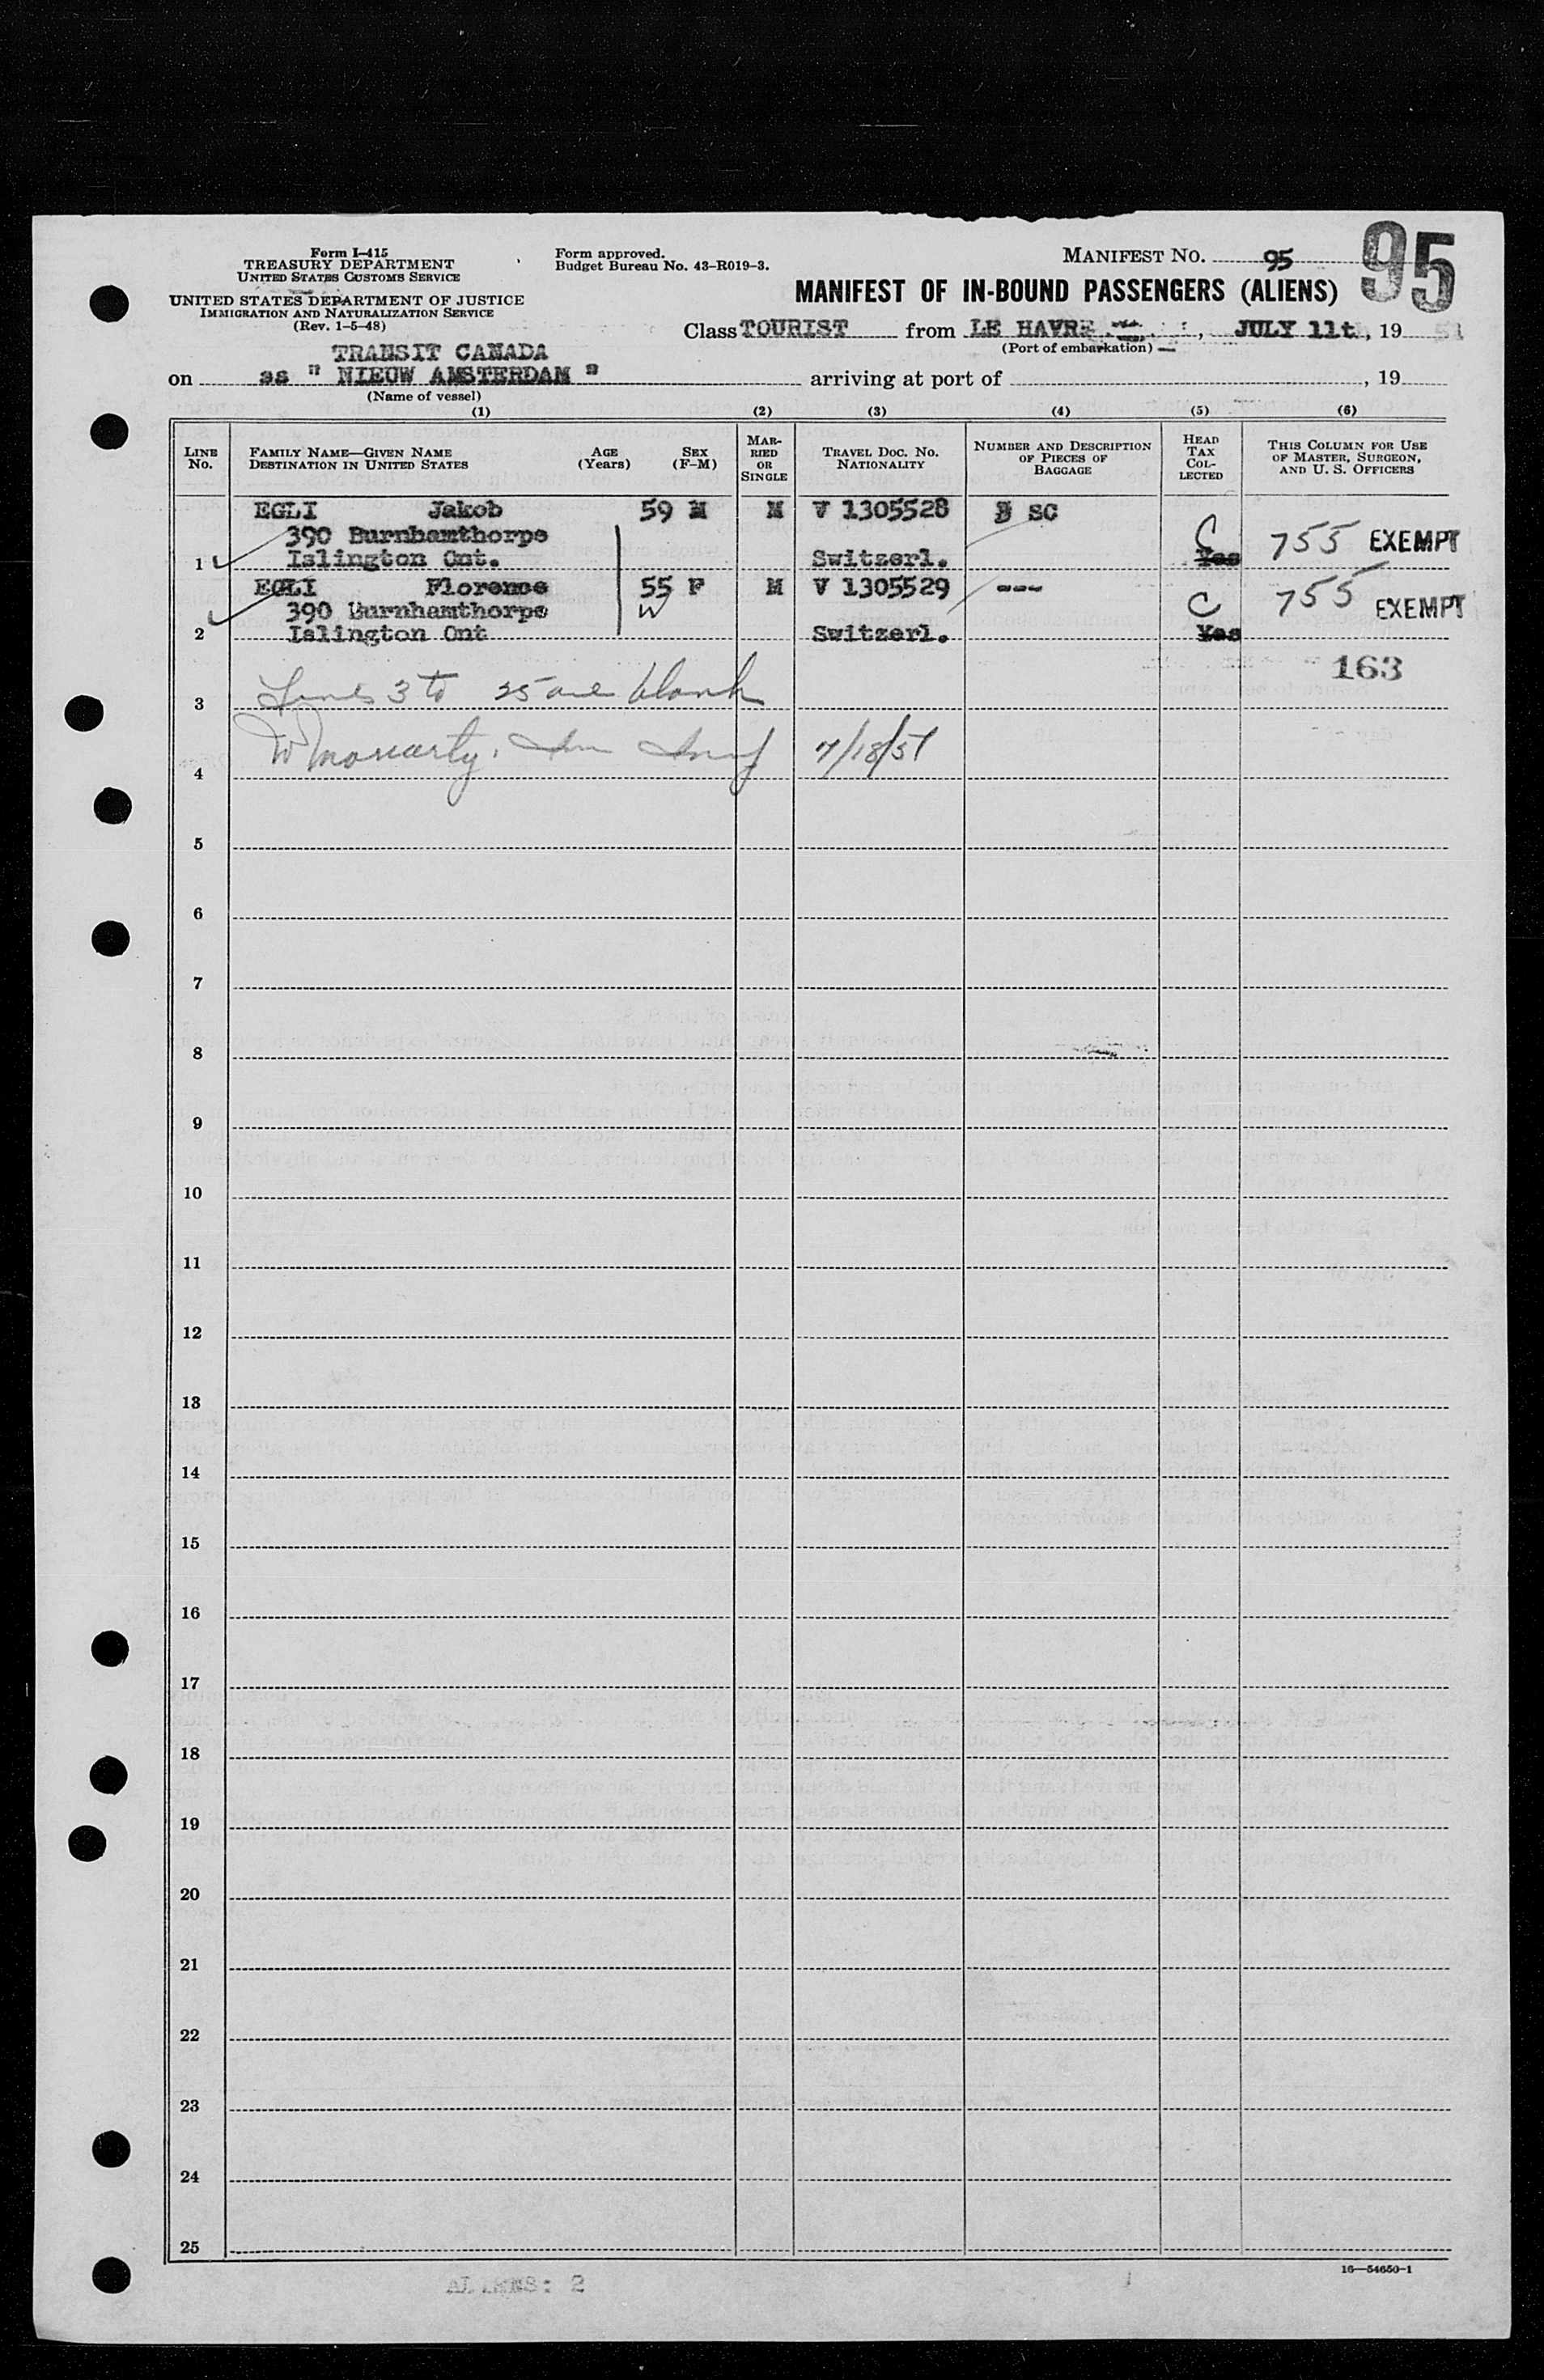 Form I-415
TREASURY DEPARTMENT
UNITED STATES CUSTOMS SERVICE
UNITED STATES DEPARTMENT OF JUSTICE
IMMIGRATION AND NATURALIZATION SERVICE
(Rev. 1-5-48)
Form approved.
Budget Bureau No. 43-R019-3.
MANIFEST NO. 95
95
MANIFEST OF IN-BOUND PASSENGERS (ALIENS)
Class TOURIST from LE HAVRE, JULY 11t, 19 51
(Port of embarkation)
TRANSIT CANADA
on ss " NIEUW AMSTERDAM " arriving at port of , 19
(Name of vessel)
(1) (2) (3) (4) (5) (6)
LINE No.
FAMILY NAME—GIVEN NAME DESTINATION IN UNITED STATES
AGE (Years)
SEX (F-M)
MARRIED OR SINGLE
TRAVEL DOC. NO. NATIONALITY
NUMBER AND DESCRIPTION OF PIECES OF BAGGAGE
HEAD TAX COLLECTED
THIS COLUMN FOR USE OF MASTER, SURGEON, AND U. S. OFFICERS
EGLI Jakob 59 M M V 1305528 SC
390 Burnhamthorpe C 755 EXEMPT
1 Islington Ont. Switzerl. Yes
EGLI Florence 55 F M V 1305529 ---
390 Burnhamthorpe W C 755 EXEMPT
2 Islington Ont Switzerl. Yes
163
3 Lines 3 to 25 are blank
4 W Moriarty, Imm Insp 7/18/51
5
6
7
8
9
10
11
12
13
14
15
16
17
18
19
20
21
22
23
24
25
16—54650-1
ALIENS: 2